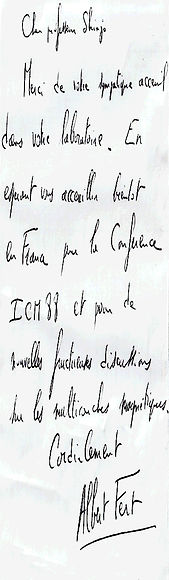 Cher professeur Shinjo
Merci de votre sympatique acceuil
dans votre laboratoire. En
esperant vous accueillir bientot
en France pour la Conference
ICM 88 et pour de
nouvelles fructueuses discussions
sur les multicouches magnétiques.
Cordialement
Albert Fert